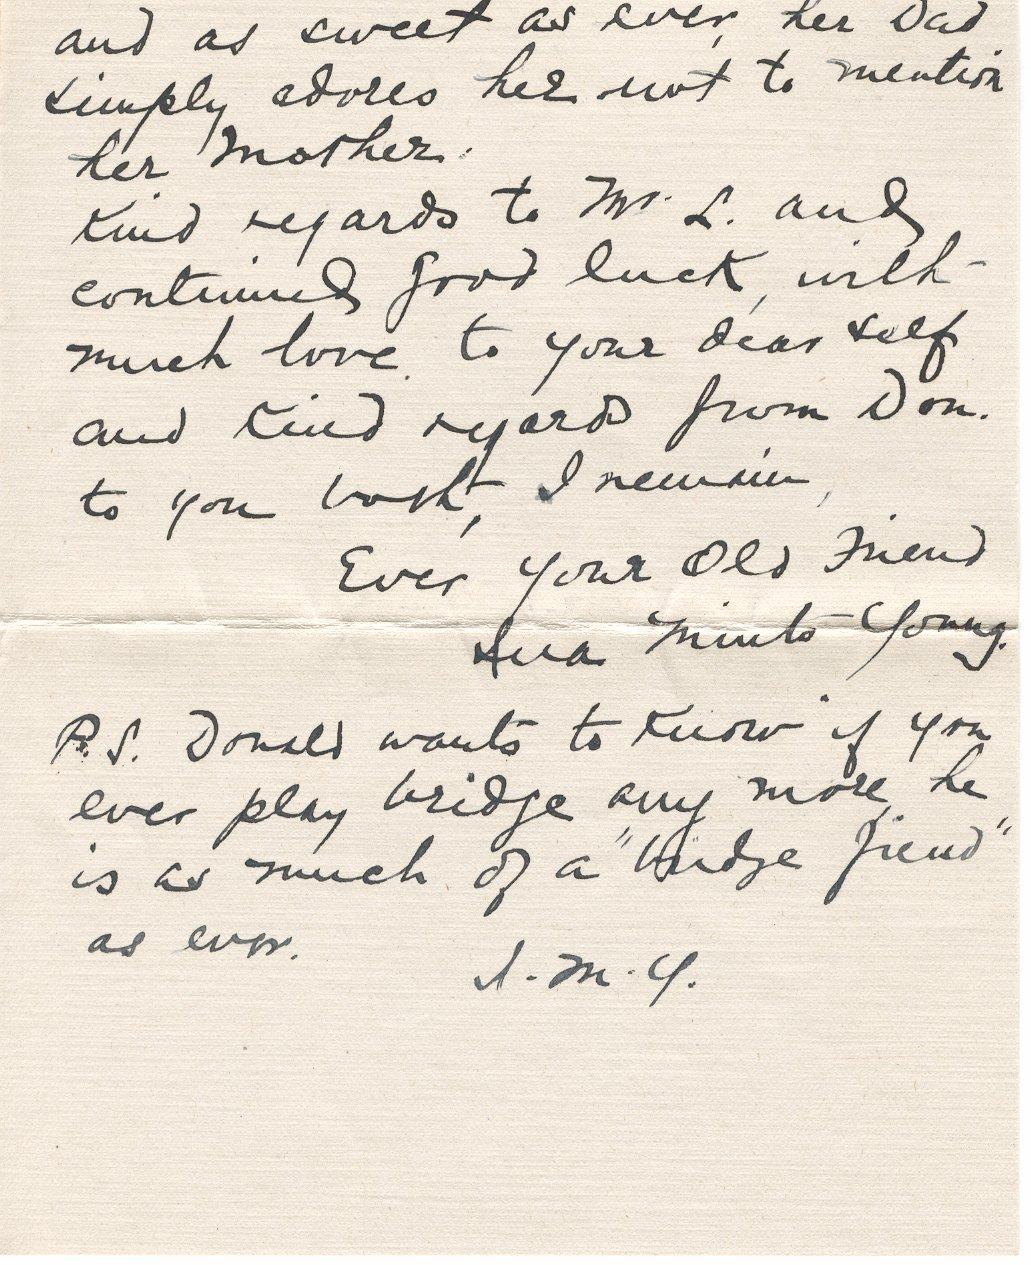 and as sweet as ever, her Dad
simply adores her not to mention
her Mother.
Kind regards to Mr. L. and
continued good luck, with
much love to your dear self
and kind regards from Don.
to you both, I remain,
Ever your Old Friend
Minto Young.
P.S. Donald wants to know if you
ever play bridge any more, he
is as much of a "bridge fiend"
as ever.
I.M.Y.